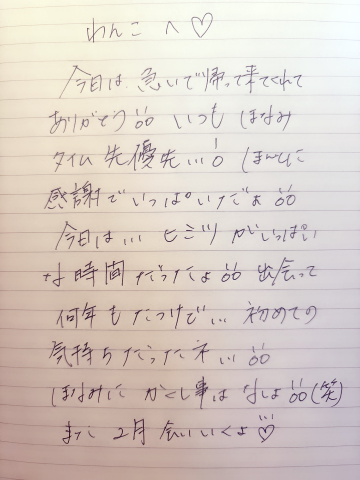 わんこへ♡
今日は急いで帰って来てくれて
ありがとう!! いつも ほなみ
タイム先優先…! ほんとに
感謝でいっぱいだよ!!
今日は… ヒミツがいっぱい
な時間だったよ!! 出会って
何年もたつけど… 初めての
気持ちだったネ… !!
ほなみに かくし事はなしよ!!(笑)
また 2月 会いいくよ♡